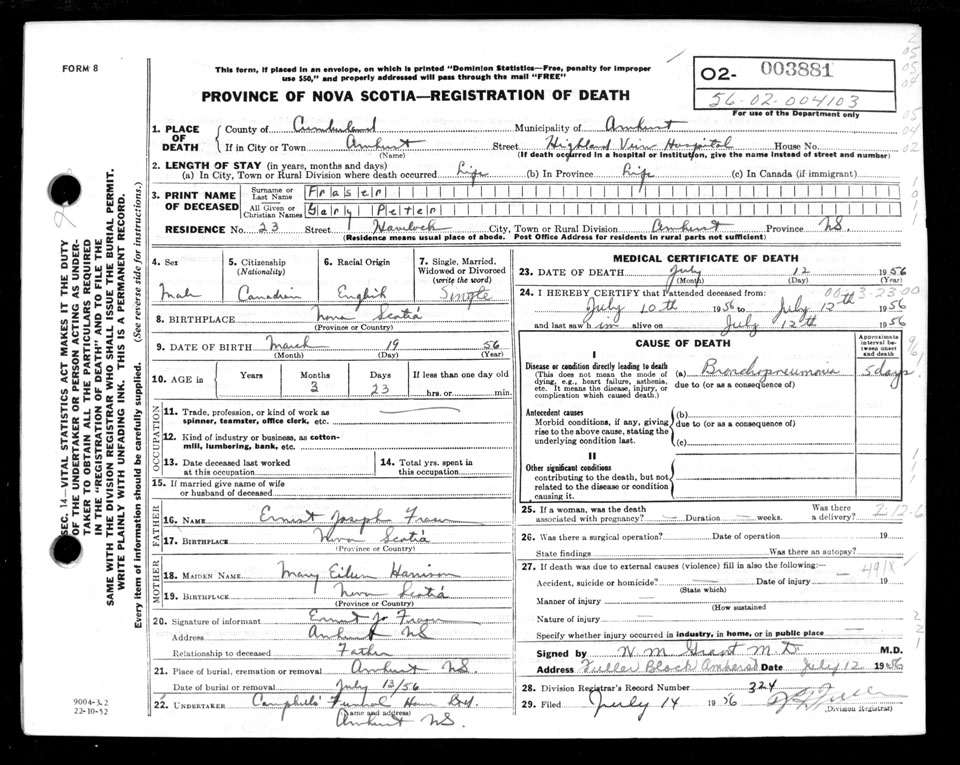 FORM 8
This form, if placed in an envelope, on which is printed "Dominion Statistics—Free, penalty for improper
use $50," and properly addressed will pass through the mail "FREE"
PROVINCE OF NOVA SCOTIA—REGISTRATION OF DEATH
O2- 003881
56-02-004103
For use of the Department only
1. PLACE OF DEATH
County of Cumberland Municipality of Amherst
If in City or Town Amherst Street Highland View Hospital House No.
(Name) (If death occurred in a hospital or institution, give the name instead of street and number)
2. LENGTH OF STAY (in years, months and days)
(a) In City, Town or Rural Division where death occurred Life (b) In Province Life (c) In Canada (if immigrant)
3. PRINT NAME OF DECEASED
Surname or Last Name Fraser
All Given or Christian Names Gary Peter
RESIDENCE No. 23 Street Havelock City, Town or Rural Division Amherst Province NS.
(Residence means usual place of abode. Post Office Address for residents in rural parts not sufficient)
4. Sex
Male
5. Citizenship
(Nationality)
Canadian
6. Racial Origin
English
7. Single, Married, Widowed or Divorced
(write the word)
Single
8. BIRTHPLACE Nova Scotia
(Province or Country)
9. DATE OF BIRTH March 19 56
(Month) (Day) (Year)
10. AGE in Years Months Days If less than one day old
3 23 hrs. or min.
OCCUPATION
11. Trade, profession, or kind of work as
spinner, teamster, office clerk, etc.
12. Kind of industry or business, as cotton-
mill, lumbering, bank, etc.
13. Date deceased last worked
at this occupation
14. Total yrs. spent in
this occupation
15. If married give name of wife
or husband of deceased
FATHER
16. NAME Ernest Joseph Fraser
17. BIRTHPLACE Nova Scotia
(Province or Country)
MOTHER
18. MAIDEN NAME Mary Eileen Harrison
19. BIRTHPLACE Nova Scotia
(Province or Country)
20. Signature of informant Ernest J. Fraser
Address Amherst NS
Relationship to deceased Father
21. Place of burial, cremation or removal Amherst NS.
Date of burial or removal July 13/56
22. UNDERTAKER Campbells' Funeral Home
(Name and address)
Amherst NS.
MEDICAL CERTIFICATE OF DEATH
23. DATE OF DEATH July 12 1956
(Month) (Day) (Year)
24. I HEREBY CERTIFY that I attended deceased from:
July 10th 1956 to July 12th 1956
and last saw h im alive on July 12th 1956
CAUSE OF DEATH
Approximate interval between onset and death
I
Disease or condition directly leading to death
(This does not mean the mode of
dying, e.g., heart failure, asthenia,
etc. It means the disease, injury, or
complication which caused death.)
(a) Bronchopneumonia 5 days
due to (or as a consequence of)
Antecedent causes
Morbid conditions, if any, giving
rise to the above cause, stating the
underlying condition last.
(b)
due to (or as a consequence of)
(c)
II
Other significant conditions
contributing to the death, but not
related to the disease or condition
causing it.
25. If a woman, was the death
associated with pregnancy? — Duration — weeks. Was there a delivery?
2-12-6
26. Was there a surgical operation? Date of operation 19
State findings Was there an autopsy?
27. If death was due to external causes (violence) fill in also the following:—
491X
Accident, suicide or homicide? Date of injury 19
(State which)
Manner of injury
(How sustained
Nature of injury
Specify whether injury occurred in industry, in home, or in public place
Signed by W M Grant M.D. M.D.
Address Fuller Block Amherst Date July 12 1956
28. Division Registrar's Record Number 324
29. Filed July 14 1956
(Division Registrar)
9004-3.2
22-10-52
SEC. 14—VITAL STATISTICS ACT MAKES IT THE DUTY
OF THE UNDERTAKER OR PERSON ACTING AS UNDER-
TAKER TO OBTAIN ALL THE PARTICULARS REQUIRED
IN THE "REGISTRATION OF DEATH" AND TO FILE THE
SAME WITH THE DIVISION REGISTRAR WHO SHALL ISSUE THE BURIAL PERMIT.
WRITE PLAINLY WITH UNFADING INK. THIS IS A PERMANENT RECORD.
Every item of information should be carefully supplied. (See reverse side for instructions.)